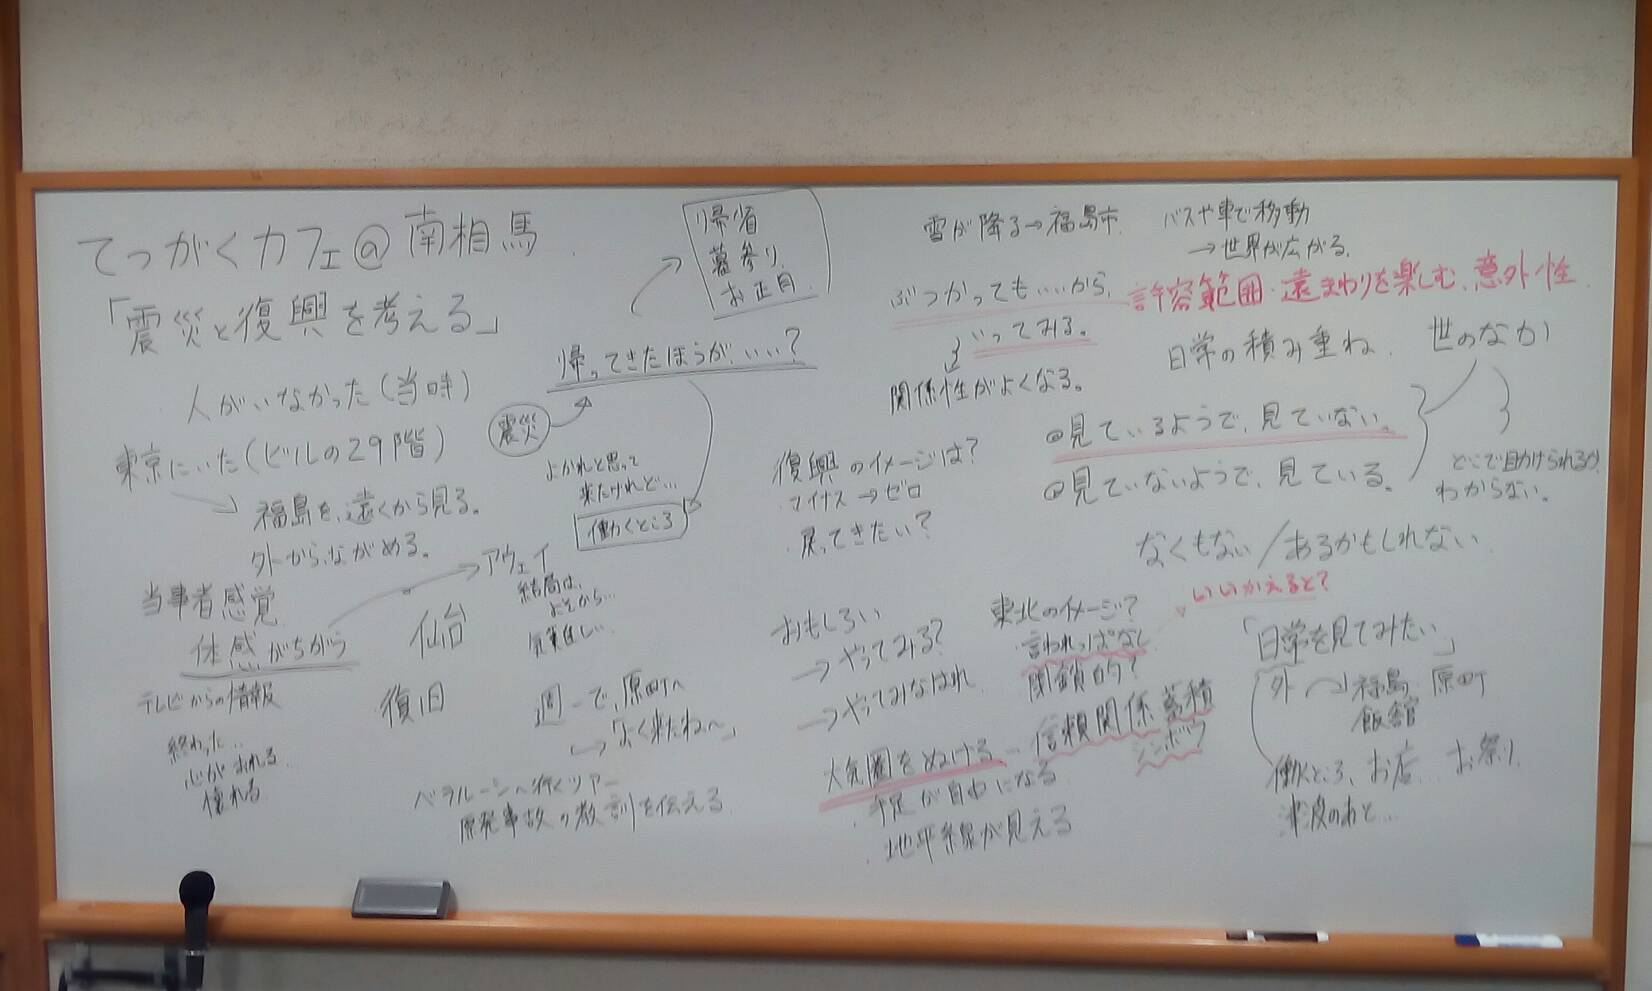 てつがくカフェ@南相馬
「震災と復興を考える」
人がいなかった(当時)
東京にいた(ビルの29階)
福島を、遠くから見る。
外から、ながめる。
当事者感覚
体感がちがう
テレビからの情報
終わった…
心がおれる…
仙台
復旧
アウェイ
結局は、
よそから…
帰省
墓参り
お正月
帰ってきたほうが、いい?
震災
よかれと思って
来たけれど…
働くところ
週一で、原町へ
「よく来たね〜」
ベラルーシへ行くツアー
原発事故の教訓を伝える
雪が降る→福島市
バスや車で移動
→世界が広がる。
ぶつかってもいいから、
いってみる。
関係性がよくなる。
許容範囲・遠まわりを楽しむ、意外性
日常の積み重ね、
世のなか
@見ているようで、見ていない。
@見ていないようで、見ている。
どこで助けられるか、
わからない。
復興のイメージは?
マイナス→ゼロ
戻ってきたい?
なくもない/あるかもしれない
おもしろい
→やってみる?
→やってみなはれ
東北のイメージ?
言われっぱなし
閉鎖的?
いいかえると?
「日常を見てみたい」
外
福島
原町
飯舘
働くところ、お店… お祭り
津波のあと…
大気圏をぬける
信頼関係 蓄積
シンボウ
・手足が自由になる
・地平線が見える